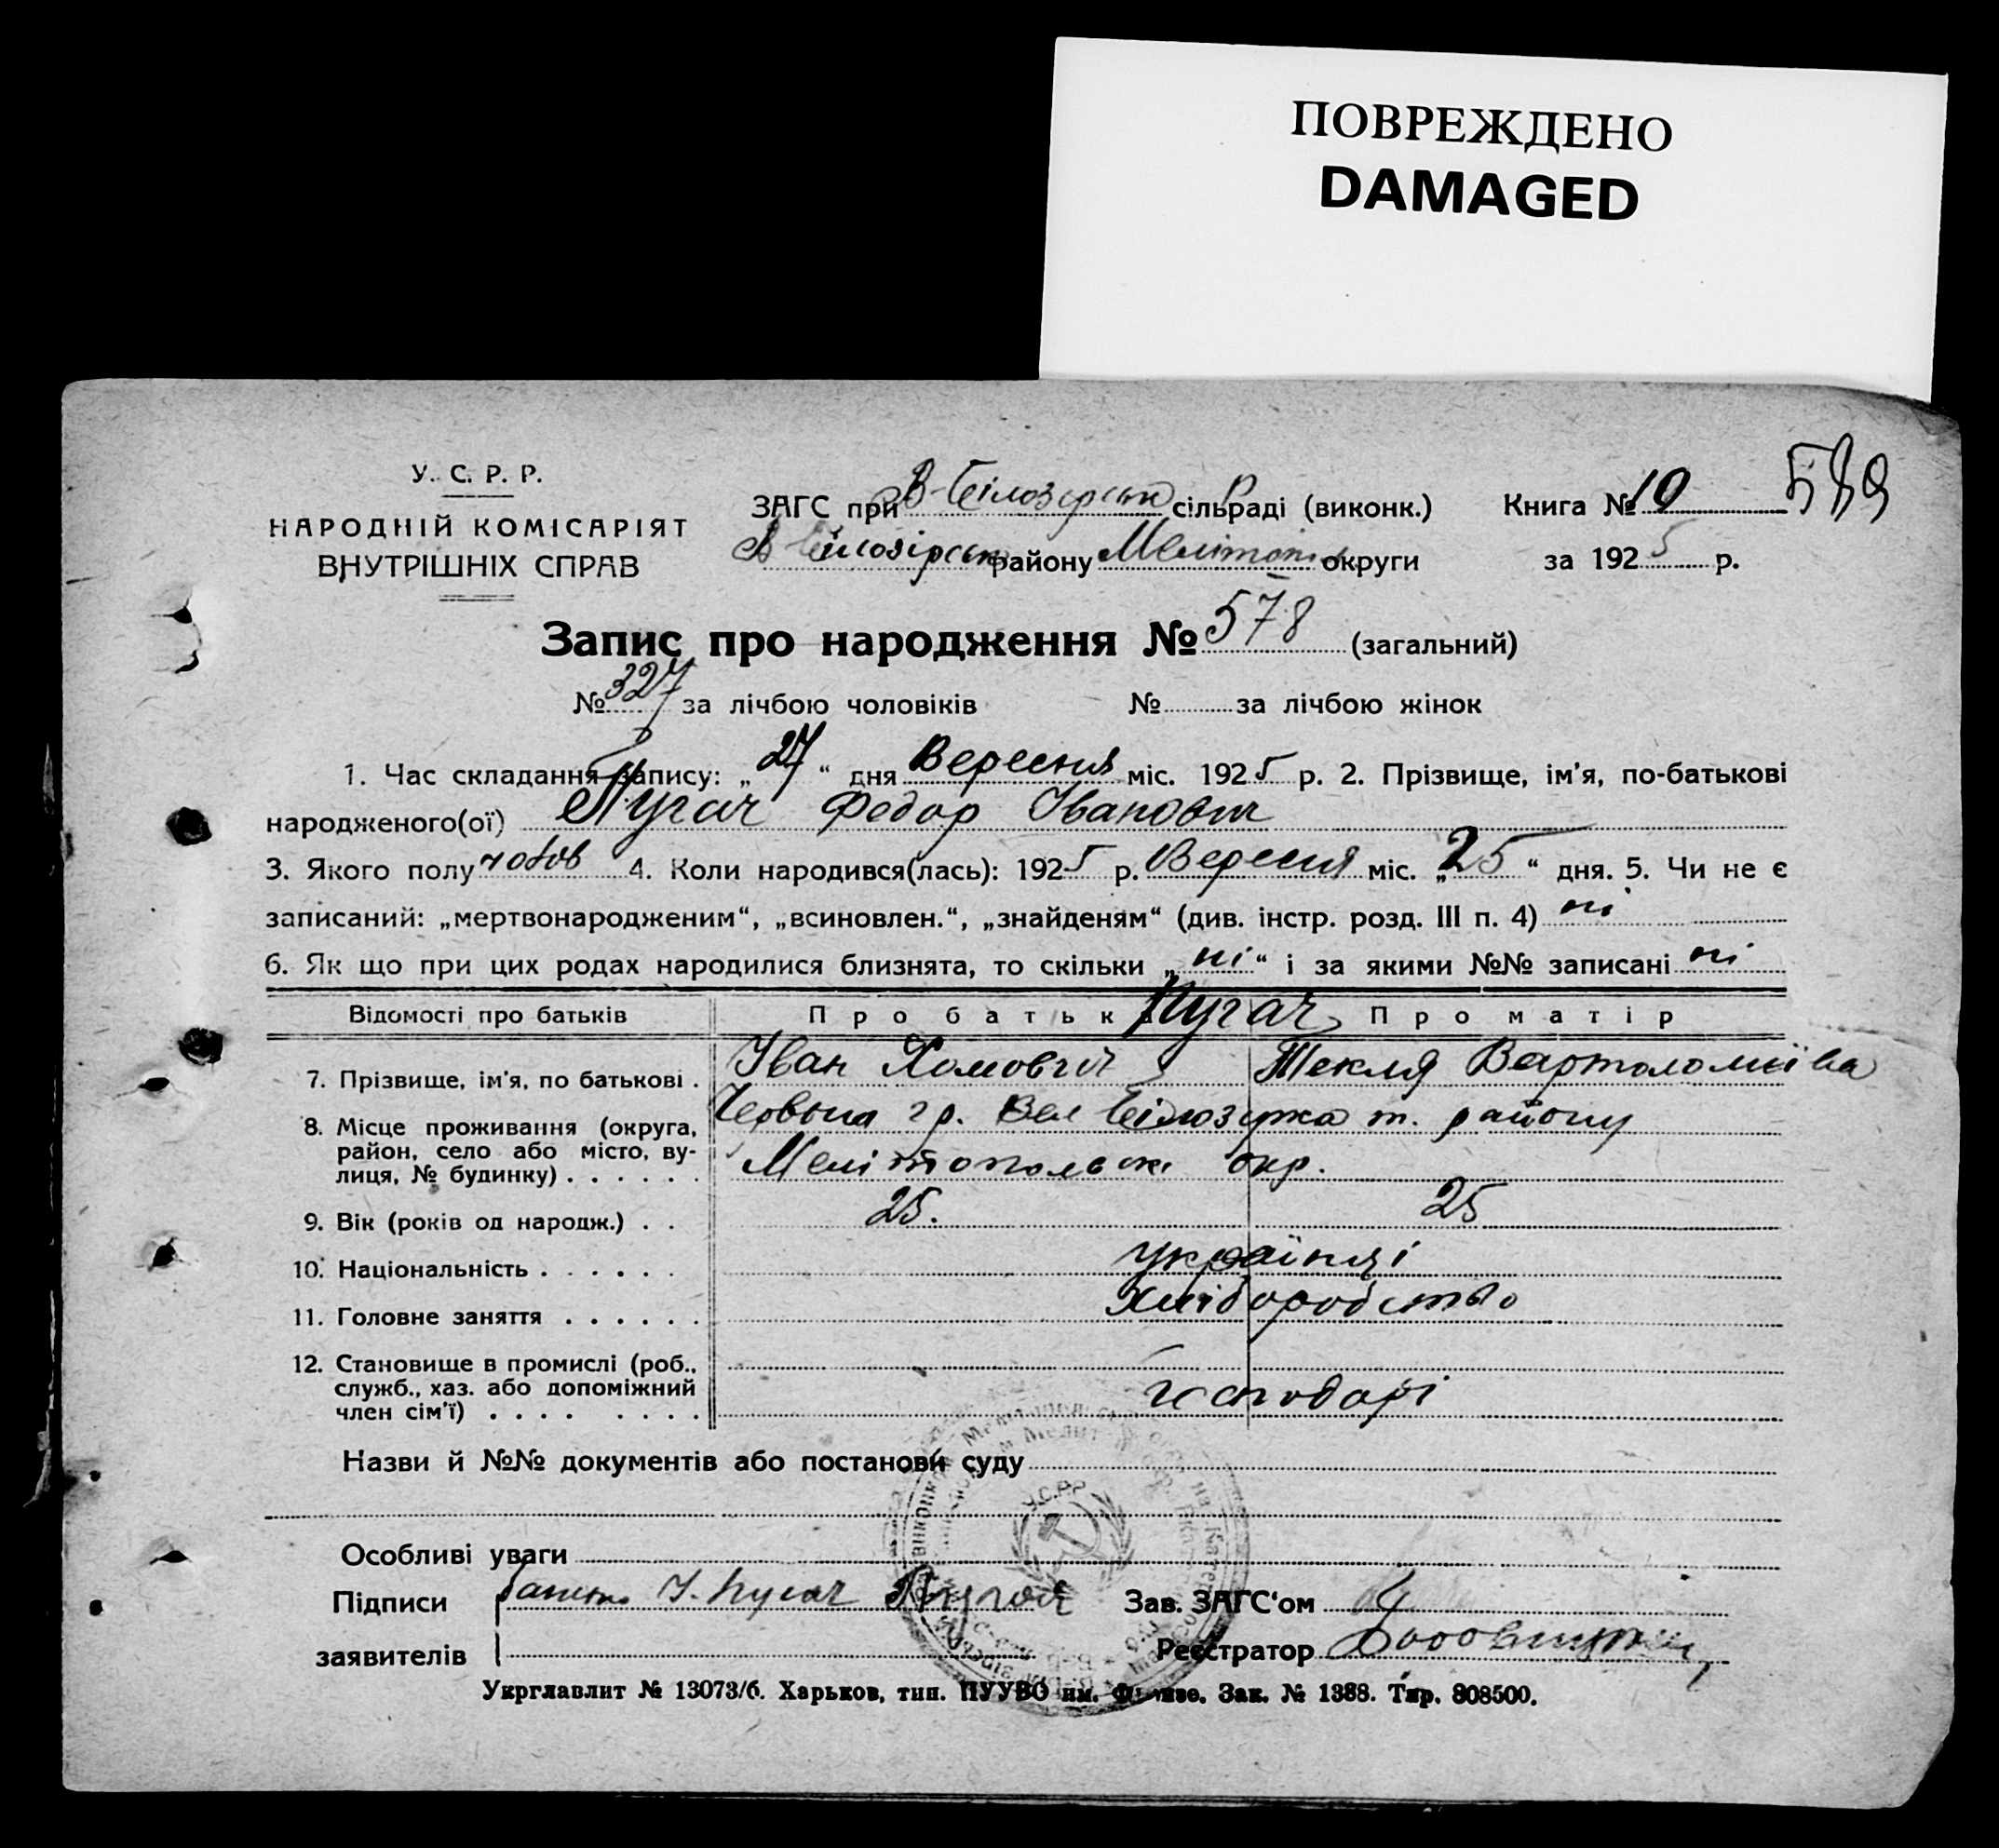 ПОВРЕЖДЕНО
DAMAGED
У. С. Р. Р.
НАРОДНІЙ КОМІСАРІЯТ
ВНУТРІШНІХ СПРАВ
ЗАГС при В-Білозерськ сільраді (виконк.)
В Білозірськ району Мелітоп округи
Книга № 10
589
за 1925 р.
Запис про народження № 578 (загальний)
№ 327 за лічбою чоловіків № за лічбою жінок
1. Час складання запису: „27“ дня Вересня міс. 1925 р. 2. Прізвище, ім'я, по-батькові
народженого(ої) Пугач Федор Іванович
3. Якого полу чолов 4. Коли народився(лась): 1925 р. Вересня міс. „25“ дня. 5. Чи не є
записаний: „мертвонародженим“, „всиновлен.“, „знайденям“ (див. інстр. розд. III п. 4) ні
6. Як що при цих родах народилися близнята, то скільки „ні“ і за якими №№ записані ні
Відомості про батьків Про батьк Пугач Про матір
7. Прізвище, ім'я, по батькові . Іван Хомович Текля Вартоломіївна
8. Місце проживання (округа, район, село або місто, вулиця, № будинку) . . . . . . гр. Вел Білозірка т. району
Мелітопольськ окр.
9. Вік (років од народж.) . . 25. 25
10. Національність . . . . . . українці
11. Головне заняття . . . . . . Хліборобство
12. Становище в промислі (роб., служб., хаз. або допоміжний член сім'ї) . . . . . . . . господарі
Назви й №№ документів або постанови суду
У.С.Р.Р.
Особливі уваги
Підписи І. Пугач Пугач Зав. ЗАГС‘ом
заявителів Реєстратор
Укрглавлит № 13073/б. Харьков, тип. ПУУВО им. Фрунзе. Зак. № 1388. Тир. 808500.